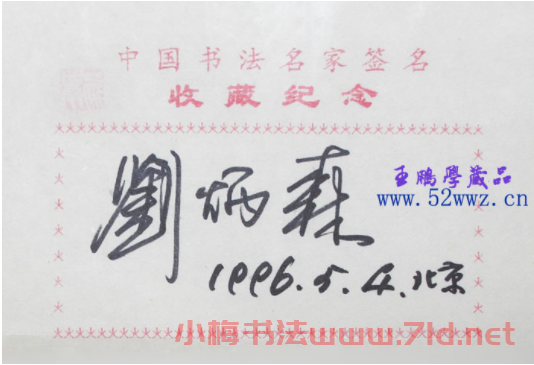 中国书法名家签名
收藏纪念
劉炳森
1996.5.4.北京
王鹏學藏品
www.52wwz.cn
小梅书法www.7ld.net